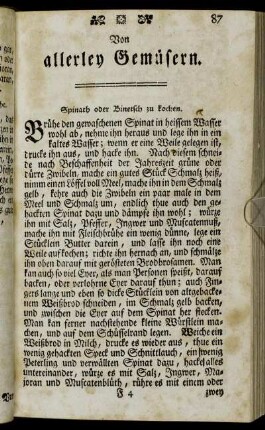 87
Von
allerley Gemüsern.
Spinath oder Binetsch zu kochen.
Brühe den gewaschenen Spinat in heissem Wasser
wohl ab, nehme ihn heraus und lege ihn in ein
kaltes Wasser; wenn er eine Weile gelegen ist,
drucke ihn aus, und hacke ihn. Nach diesem schnei-
de nach Beschaffenheit der Jahreszeit grüne oder
dürre Zwibeln, mache ein gutes Stück Schmalz heiß,
nimm einen Löffel voll Meel, mache ihn in dem Schmalz
gelb, kehre auch die Zwibeln ein paar male in dem
Meel und Schmalz um, endlich thue auch den ge-
hackten Spinat dazu und dämpfe ihn wohl; würze
ihn mit Salz, Pfeffer, Ingwer und Muscatennuß,
mache ihn mit Fleischbrühe ein wenig dünne, lege ein
Stücklein Butter darein, und lasse ihn noch eine
Weile aufkochen; richte ihn hernach an, und schmälze
ihn oben darauf mit gerösteten Brodbrosamen. Man
kan auch so viel Eyer, als man Personen speißt, darauf
backen, oder verlohrne Eyer darauf thun; auch Fin-
gers lange und eben so dicke Stücklein von altgebacke-
nem Weißbrod schneiden, im Schmalz gelb backen,
und zwischen die Eyer auf dem Spinat her stecken.
Man kan ferner nachstehende kleine Würstlein ma-
chen, und auf dem Schüsselrand legen. Weiche ein
Weißbrod in Milch, drucke es wieder aus, thue ein
wenig gehackten Speck und Schnittlauch, ein wenig
Peterling und verwällten Spinat dazu, hacke alles
untereinander, würze es mit Salz, Ingwer, Ma-
joran und Muscatenblüth, rühre es mit einem oder
F 4 zwey